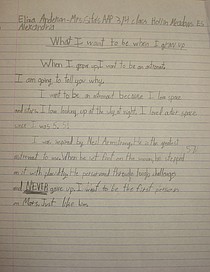 Elina Anderson - Mrs. Sitris AAP 3rd class Hollin Meadows ES
Alexandria
What I want to be when I grow up
When I grow up I want to be an astronaut.
I am going to tell you why.
I want to be an astronaut because I love space
and stars. I love looking up at the sky at night. I loved outer space
since I was 5.
I was inspired by Neil Armstrong. He is the greatest
astronaut to me. When he set foot on the moon, he stepped
on it with
He persevered through tough challenges
and NEVER gave up. I want to be the first
on Mars. Just like him.